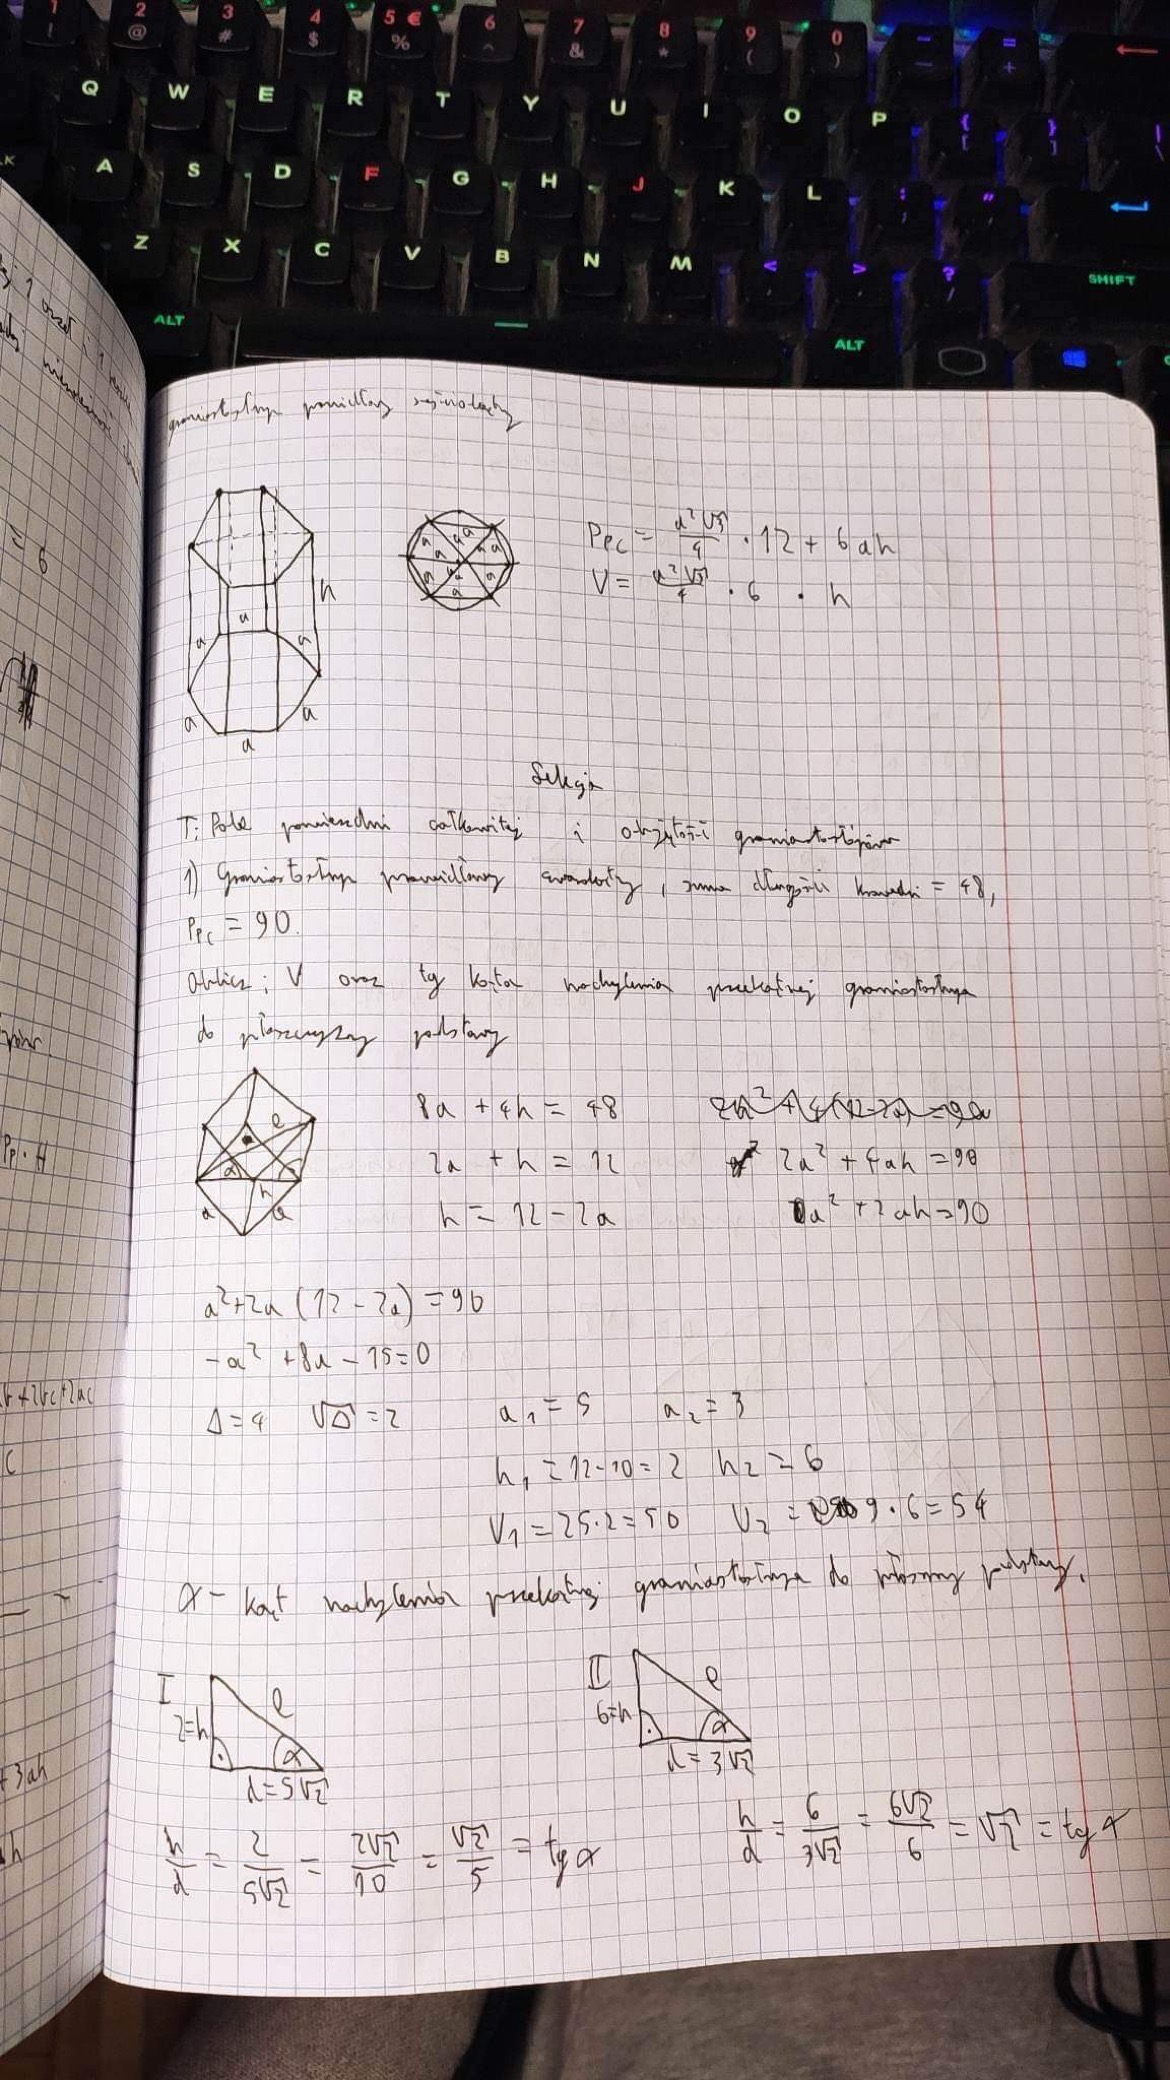 1 2 3 4 5 € 6 7 8 9 0 - =
! @ # $ % ^ & * ( ) _ +
Q W E R T Y U I O P { }
[ ]
A S D F G H J K L : "
;
Z X C V B N M < > ?
/
SHIFT
ALT ALT
graniastosłup prawidłowy sześciokątny
h
a a a a a a
a a a a a a a a a
P_pc = a²√3/4 · 12 + 6ah
V = a²√3/4 · 6 · h
Lekcja
T: Pole powierzchni całkowitej i objętość graniastosłupów
1) Graniastosłup prawidłowy czworokątny, suma długości krawędzi = 48,
P_pc = 90.
Oblicz: V oraz tg kąta nachylenia przekątnej graniastosłupa
do płaszczyzny podstawy
8a + 4h = 48
2a + h = 12 2a² + 4ah = 90
h = 12 - 2a a² + 2ah = 90
a² + 2a (12 - 2a) = 90
-a² + 8a - 15 = 0
Δ = 4 √Δ = 2 a₁ = 5 a₂ = 3
h₁ = 12 - 10 = 2 h₂ = 6
V₁ = 25 · 2 = 50 V₂ = 9 · 6 = 54
α - kąt nachylenia przekątnej graniastosłupa do płaszczyzny podstawy.
I II
2=h l α 6=h l α
d = 5√2 d = 3√2
h/d = 2/5√2 = 2√2/10 = √2/5 = tg α h/d = 6/3√2 = 6√2/6 = √2 = tg α
= 6
Pp · H
+ 3ah